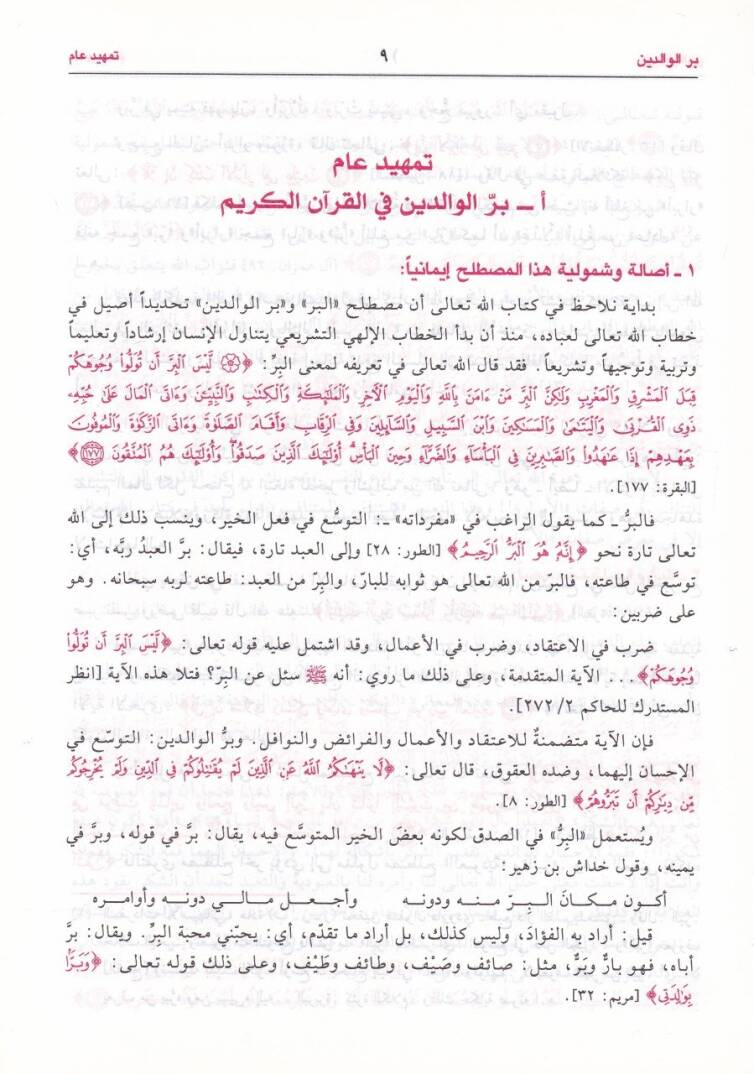 بر الوالدين ٩ تمهيد عام
تمهيد عام
أ ـ برّ الوالدين في القرآن الكريم
١ ـ أصالة وشمولية هذا المصطلح إيمانياً:
بداية نلاحظ في كتاب الله تعالى أن مصطلح «البر» و«بر الوالدين» تحديداً أصيل في
خطاب الله تعالى لعباده، منذ أن بدأ الخطاب الإلهي التشريعي يتناول الإنسان إرشاداً وتعليماً
وتربية وتوجيهاً وتشريعاً. فقد قال الله تعالى في تعريفه لمعنى البِرِّ: ﴿۞ لَّيْسَ الْبِرَّ أَن تُوَلُّوا وُجُوهَكُمْ
قِبَلَ الْمَشْرِقِ وَالْمَغْرِبِ وَلَٰكِنَّ الْبِرَّ مَنْ ءَامَنَ بِاللَّهِ وَالْيَوْمِ الْآخِرِ وَالْمَلَٰٓئِكَةِ وَالْكِتَٰبِ وَالنَّبِيِّۦنَ وَءَاتَى الْمَالَ عَلَىٰ حُبِّهِۦ
ذَوِى الْقُرْبَىٰ وَالْيَتَٰمَىٰ وَالْمَسَٰكِينَ وَابْنَ السَّبِيلِ وَالسَّآئِلِينَ وَفِى الرِّقَابِ وَأَقَامَ الصَّلَوٰةَ وَءَاتَى الزَّكَوٰةَ وَالْمُوفُونَ
بِعَهْدِهِمْ إِذَا عَٰهَدُوا وَالصَّٰبِرِينَ فِى الْبَأْسَآءِ وَالضَّرَّآءِ وَحِينَ الْبَأْسِ أُولَٰٓئِكَ الَّذِينَ صَدَقُوا وَأُولَٰٓئِكَ هُمُ الْمُتَّقُونَ ١٧٧﴾
[البقرة: ١٧٧].
فالبرُّ ـ كما يقول الراغب في «مفرداته» ـ: التوسُّع في فعل الخير، وينسب ذلك إلى الله
تعالى تارة نحو ﴿إِنَّهُ هُوَ الْبَرُّ الرَّحِيمُ﴾ [الطور: ٢٨] وإلى العبد تارة، فيقال: برَّ العبدُ ربَّه، أي:
توسَّع في طاعته، فالبر من الله تعالى هو ثوابه للبارّ، والبِرّ من العبد: طاعته لربه سبحانه. وهو
على ضربين:
ضرب في الاعتقاد، وضرب في الأعمال، وقد اشتمل عليه قوله تعالى: ﴿لَّيْسَ الْبِرَّ أَن تُوَلُّوا
وُجُوهَكُمْ﴾... الآية المتقدمة، وعلى ذلك ما روي: أنه ﷺ سئل عن البِرِّ؟ فتلا هذه الآية [انظر
المستدرك للحاكم ٢/ ٢٧٢].
فإن الآية متضمنةٌ للاعتقاد والأعمال والفرائض والنوافل. وبرُّ الوالدين: التوسّع في
الإحسان إليهما، وضده العقوق، قال تعالى: ﴿لَا يَنْهَىٰكُمُ اللَّهُ عَنِ الَّذِينَ لَمْ يُقَٰتِلُوكُمْ فِى الدِّينِ وَلَمْ يُخْرِجُوكُم
مِّن دِيَٰرِكُمْ أَن تَبَرُّوهُمْ﴾ [الطور: ٨].
ويُستعمل «البِرُّ» في الصدق لكونه بعضَ الخير المتوسَّع فيه، يقال: برَّ في قوله، وبرَّ في
يمينه، وقول خداش بن زهير:
أكون مكانَ البِرّ منه ودونه وأجعل مالي دونه وأوامره
قيل: أراد به الفؤادَ، وليس كذلك، بل أراد ما تقدّم، أي: يحبّني محبة البِرِّ. ويقال: برَّ
أباه، فهو بارٌّ وبَرٌّ، مثل: صائف وصَيْف، وطائف وطَيْف، وعلى ذلك قوله تعالى: ﴿وَبَرًّا
بِوَٰلِدَتِى﴾ [مريم: ٣٢].